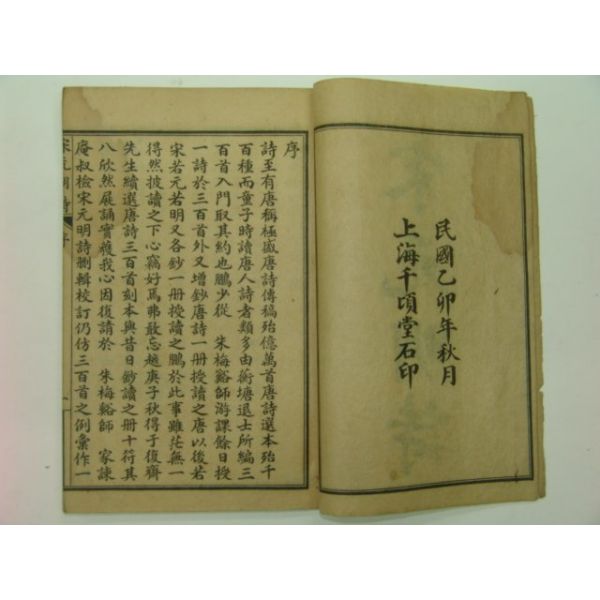 民國乙卯年秋月
上海千頃堂石印
序
詩至有唐稱極盛唐詩傳稿殆億萬首唐詩選本殆千
百種而童子時讀唐人詩者類多由蘅塘退士所編三
百首入門取其約也鵬少從 朱梅谿師游課餘日授
一詩於三百首外又增鈔唐詩一册授讀之唐以後若
宋若元若明又各鈔一册授讀之鵬於此事雖茫無一
得然披讀之下心竊好焉弗敢忘越庚子秋得于復齋
先生續選唐詩三百首刻本與昔日鈔讀之册十符其
八欣然展誦實獲我心因復請於 朱梅谿師 家諫
庵叔檢宋元明詩刪輯校訂仍仿三百首之例彙作一
宋元明詩 序